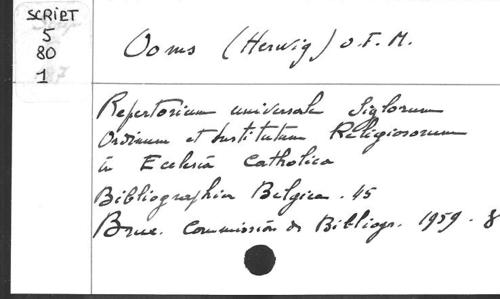 SCRIPT
5
80
1
Ooms (Herwig) O.F.M.
Repertorium universale Siglorum
Ordinum et Institutum Religiosorum
in Ecclesia Catholica
Bibliographia Belgica. 45
Brux. Commission de Bibliogr. 1959. 8